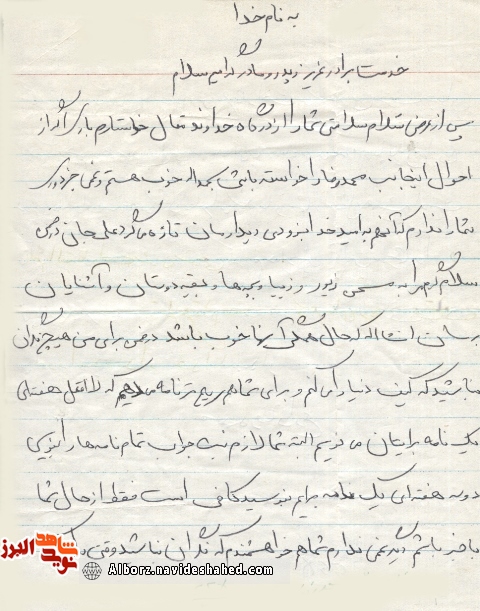 به نام خدا
خدمت برادر عزیز و پدر و مادر گرامیم سلام
پس از عرض سلام سلامتی شما را از درگاه خداوند متعال خواستارم باری اگر از
احوال اینجانب محمدرضا خواسته باشی بحمدالله خوب هستم و غمی جز دوری
شما ندارم که آنهم به امید خدا بزودی دیدارمان تازه می گردد علی جان
سلام گرم مرا به و زیبا و بچه ها و بقیه دوستان و آشنایان
برسان انشاالله که حال همگی آنها خوب باشد در ضمن برای من هیچ نگران
نباشید که کیف دنیا را می کنم و برای شما هم نامه میدهم که لااقل هفته ای
یک نامه برایتان می نویسم البته شما لازم نیست جواب تمام نامه ها را بنویسی
دو سه هفته ای یک نامه برایم بنویسید کافی است فقط از حال شما
باخبر باشم دیگر غمی ندارم شما هم خواهشمندم که نگران نباشید وقتی
شاهد البرز
نوید
Alborz.navideshahed.com